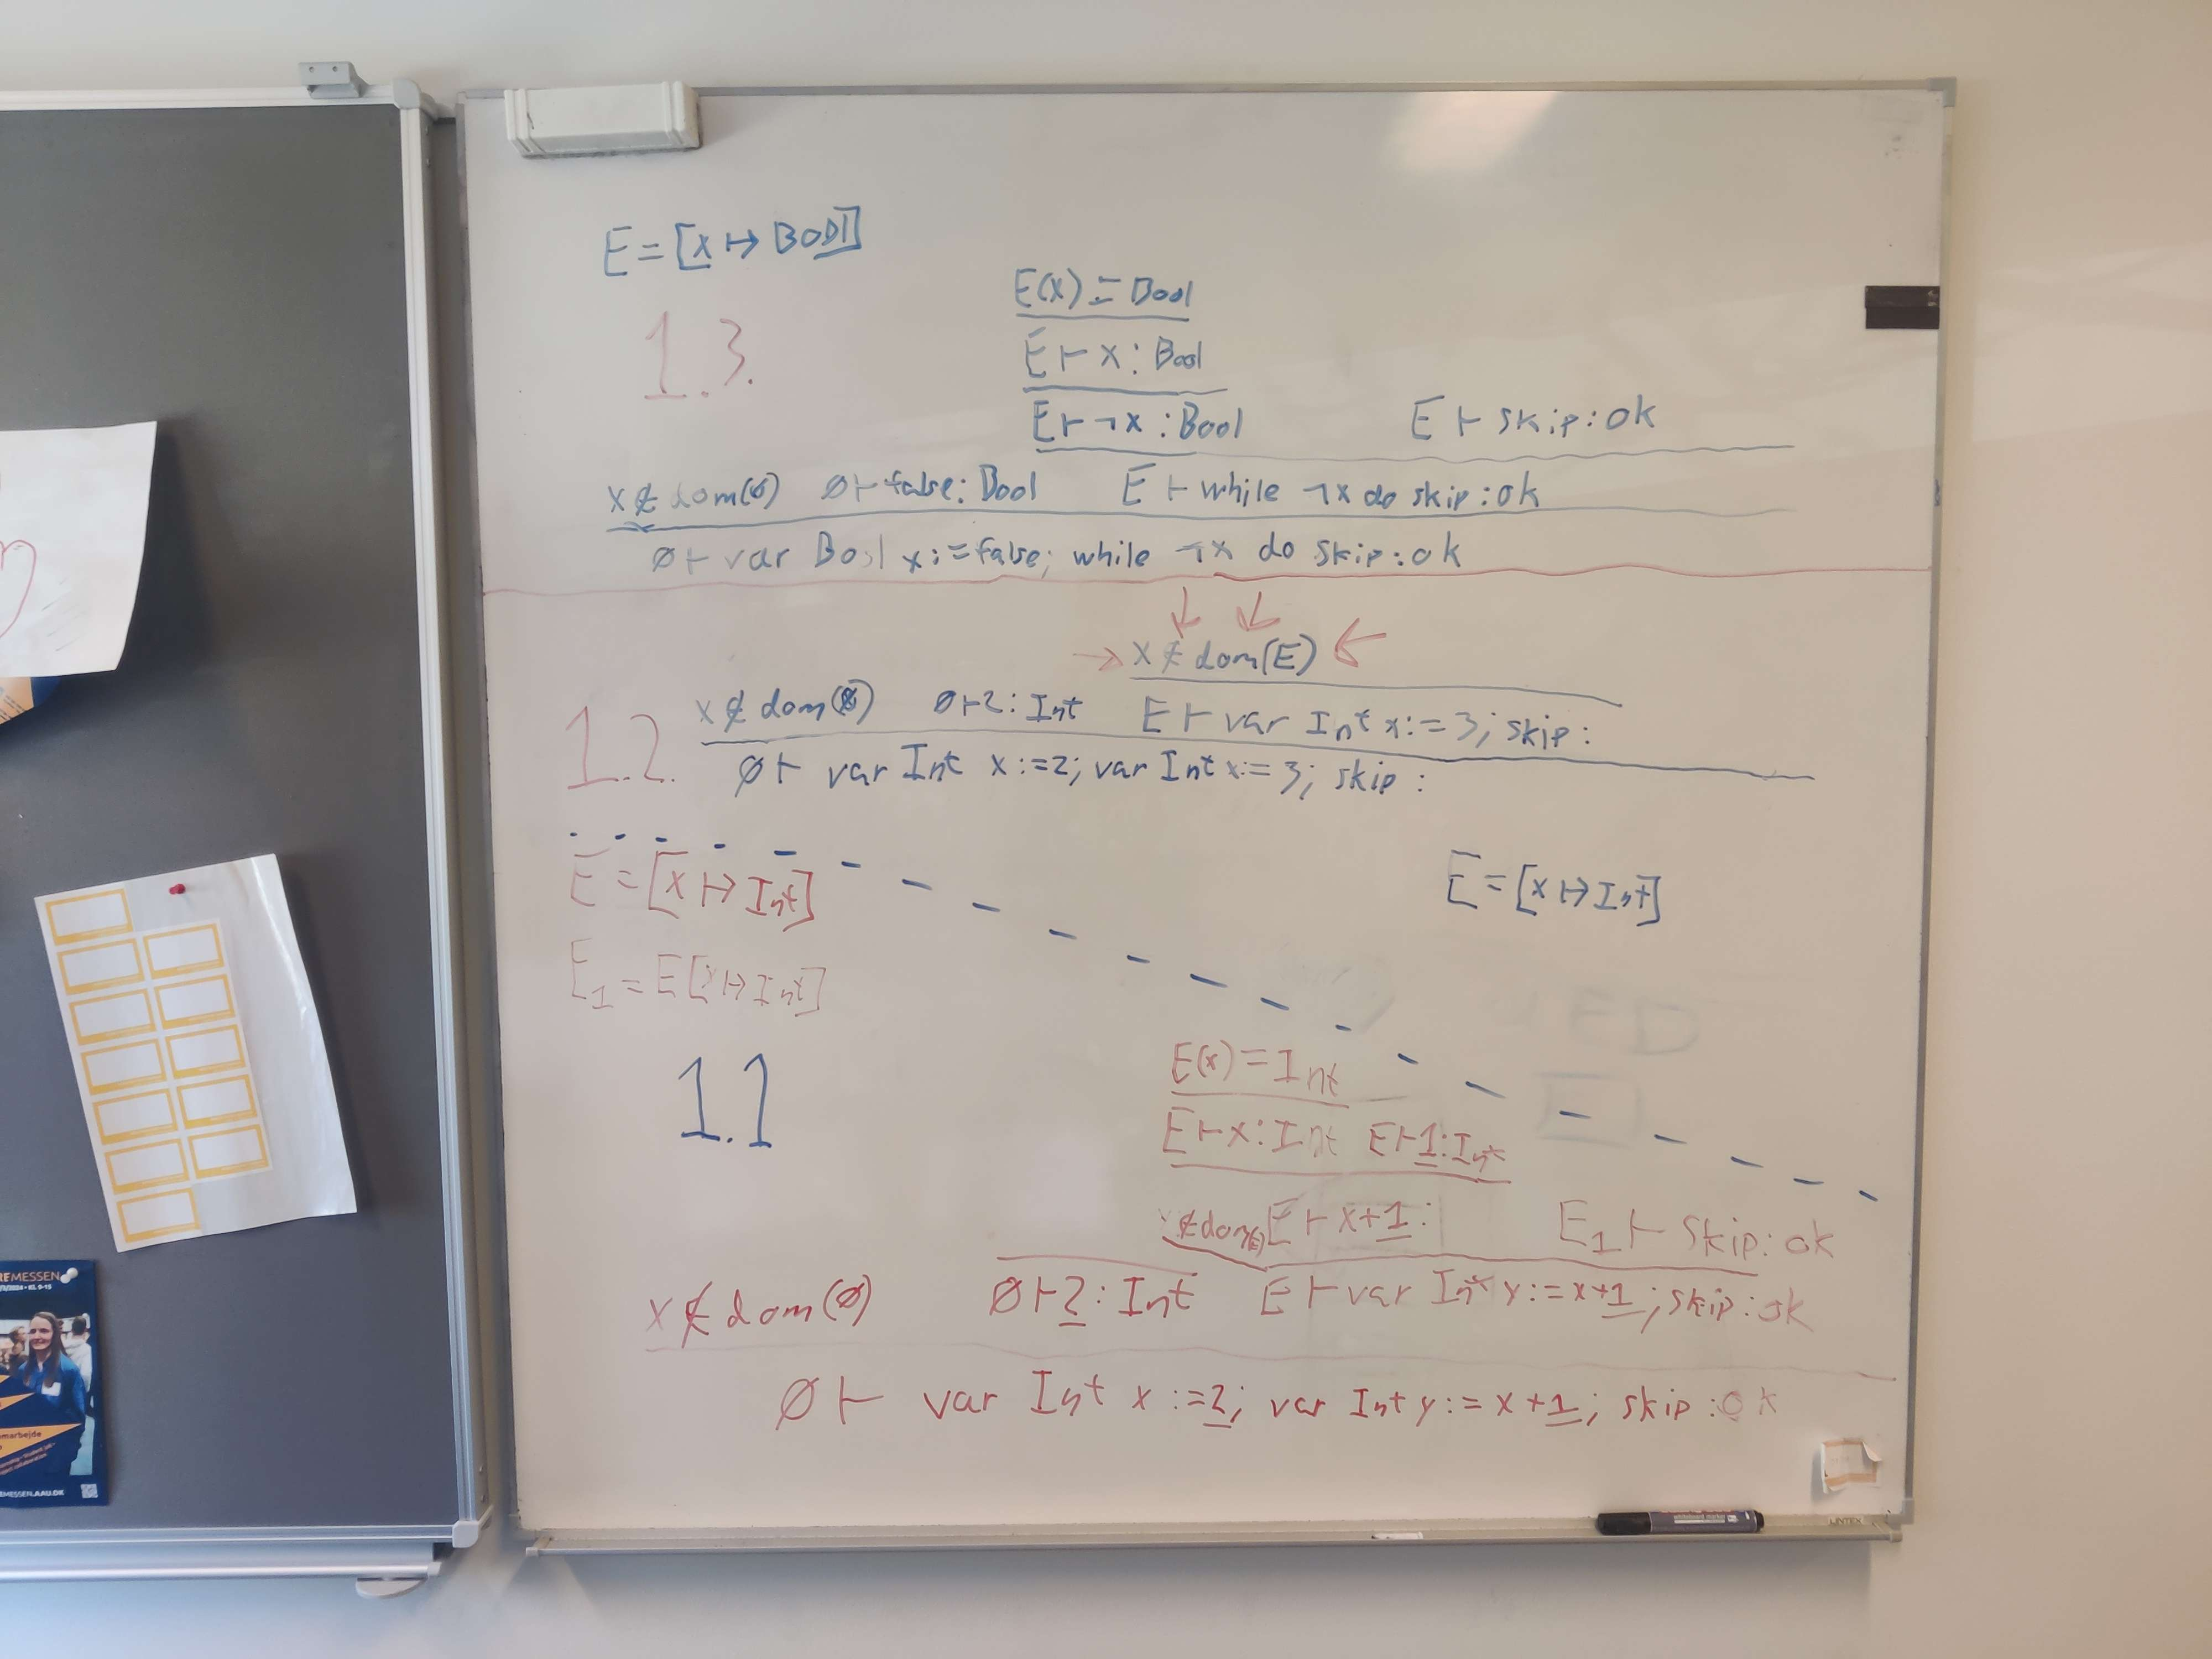 E = [x ↦ Bool]
1.3.
E(x) = Bool
E ⊢ x : Bool
E ⊢ ¬x : Bool E ⊢ skip : ok
x ∉ dom(∅) ∅ ⊢ false : Bool E ⊢ while ¬x do skip : ok
∅ ⊢ var Bool x := false; while ¬x do skip : ok
↓ ↓
→ x ∉ dom(E) ←
1.2. x ∉ dom(∅) ∅ ⊢ 2 : Int E ⊢ var Int x := 3; skip :
∅ ⊢ var Int x := 2; var Int x := 3; skip :
E = [x ↦ Int]
E = [x ↦ Int]
E₁ = E[x ↦ Int]
1.1
E(x) = Int
E ⊢ x : Int E ⊢ 1 : Int
∉ dom(E) E ⊢ x+1 : E₁ ⊢ skip : ok
x ∉ dom(∅) ∅ ⊢ 2 : Int E ⊢ var Int y := x+1; skip : ok
∅ ⊢ var Int x := 2; var Int y := x+1; skip : ok
MESSEN
MESSEN.AAU.DK
LINTEX